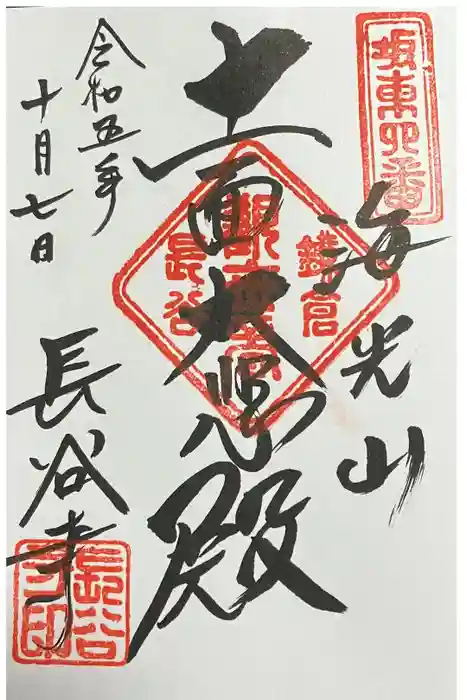 坂東四番
海光山
鎌倉
十一面大悲殿
長谷
令和五年
十月七日
長谷寺
長谷寺印